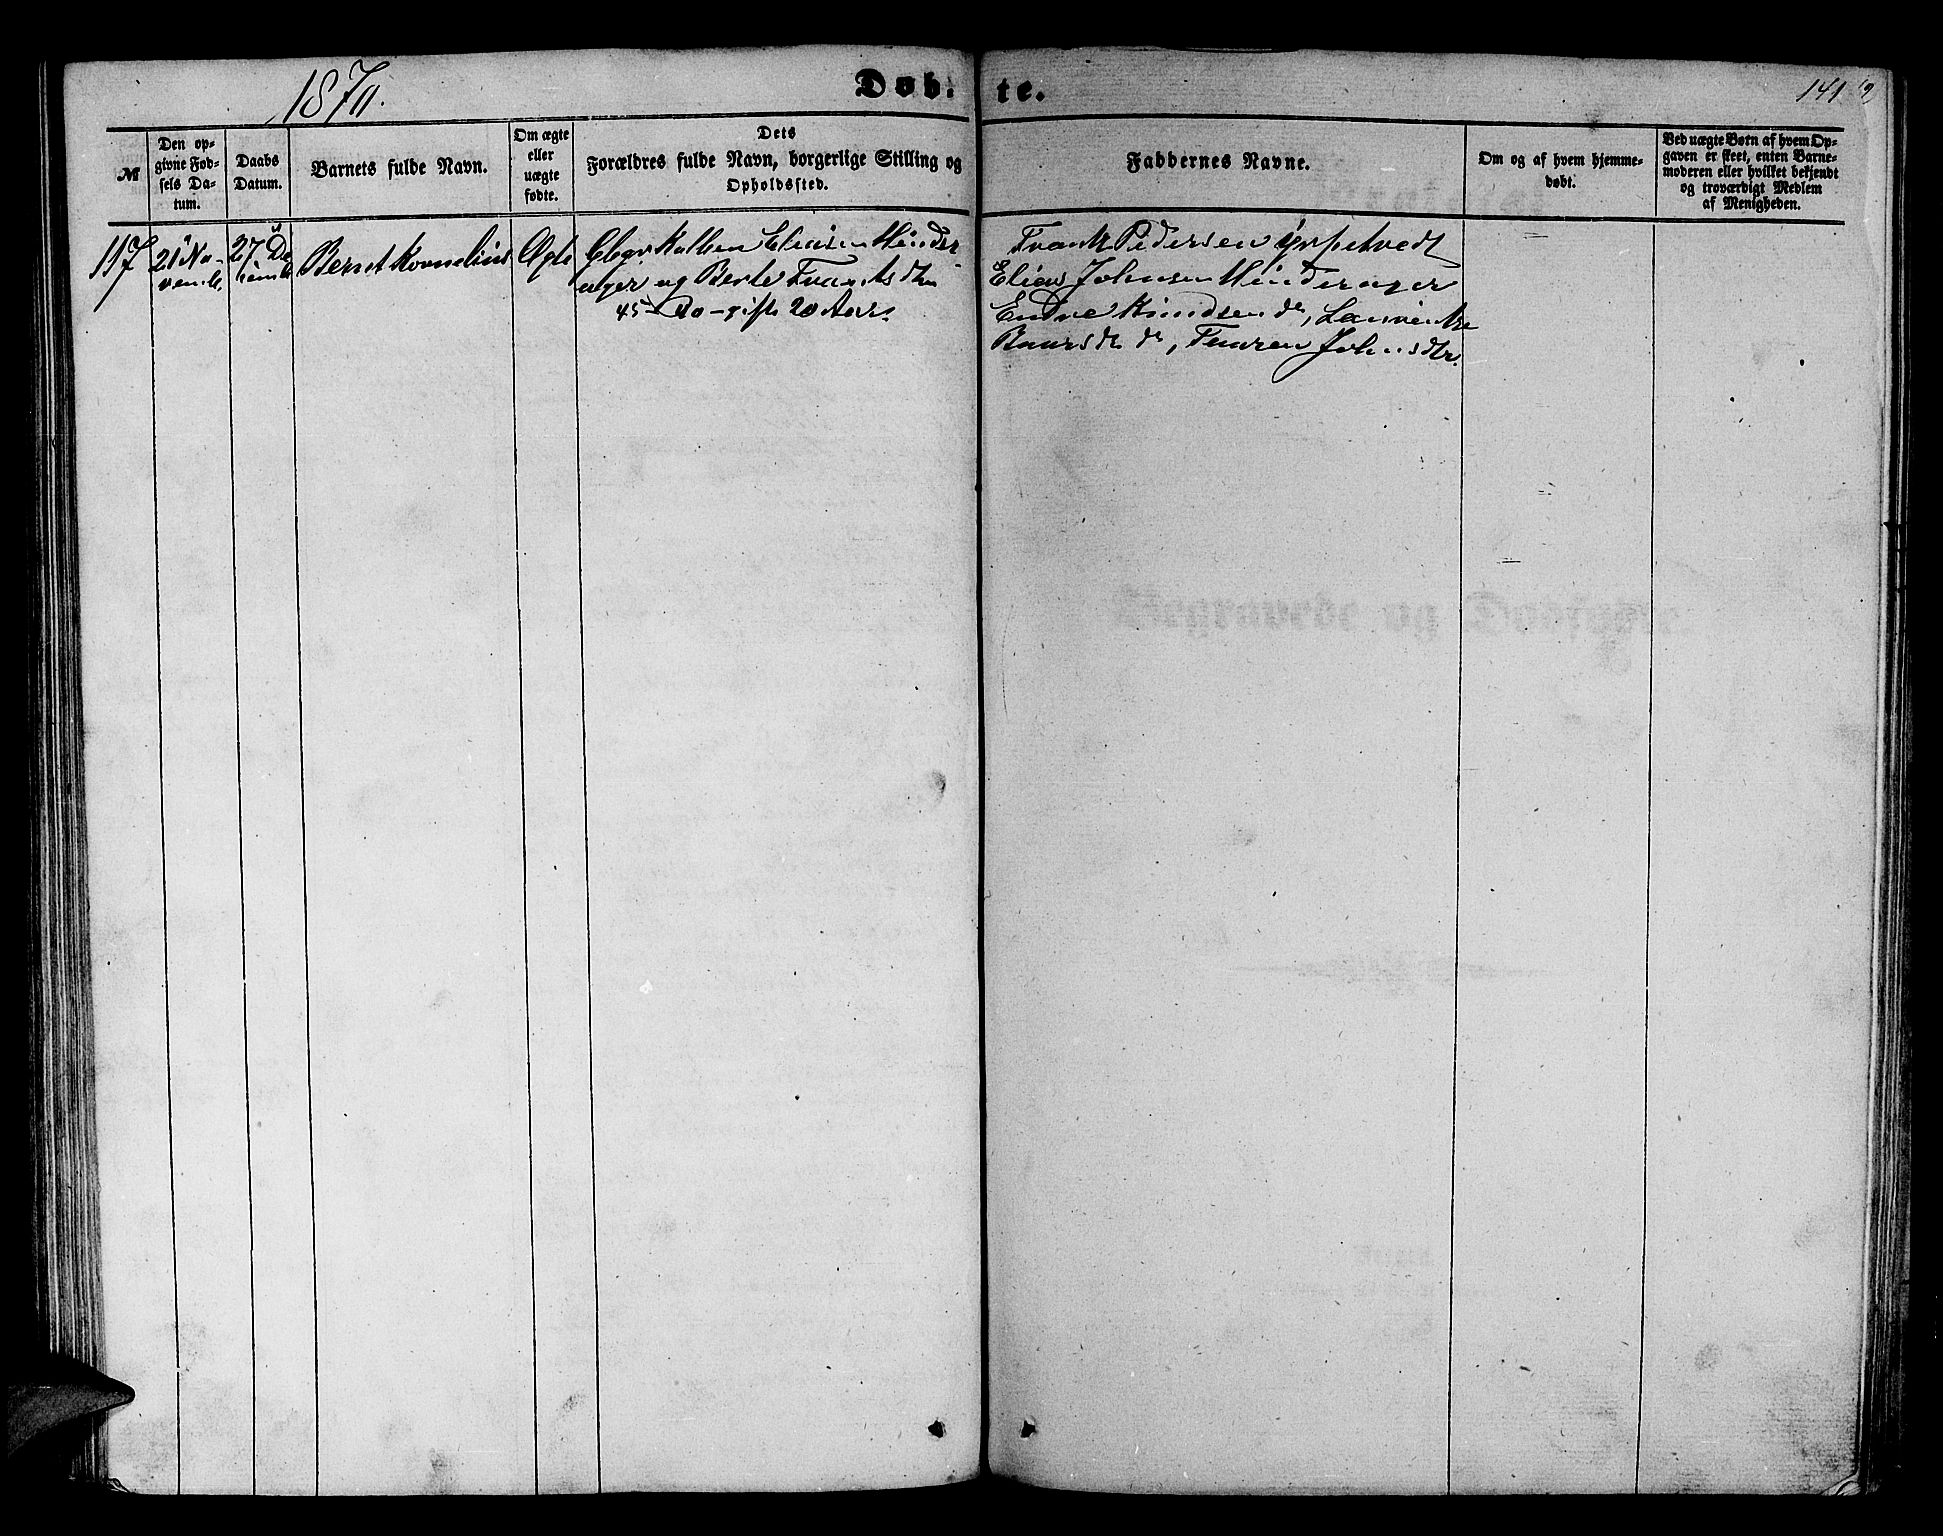 1870.
Døb- te.
141
№
Den op-
givne Fød-
sels Da-
tum.
Daabs
Datum.
Barnets fulde Navn.
Om ægte
eller
uægte
fødte.
Dets
Forældres fulde Navn, borgerlige Stilling og
Opholdssted.
Faddernes Navne.
Om og af hvem hjemme-
døbt.
Ved uægte Børn af hvem Op-
gaven er skeet, enten Barne-
moderen eller hvilket bekjendt
og troværdigt Medlem
af Menigheden.
117
21 No-
vemb.
27 De
cemb
Bernt Kornelius
Ægte
Elias Hinder-
ager og Berte Frantsdtr
45 - 40 - gifte 20 Aar.
Frants Pedersen
Elias Johnsen Hinderager
Endre Knudsen do,
do, Johnsdtr.